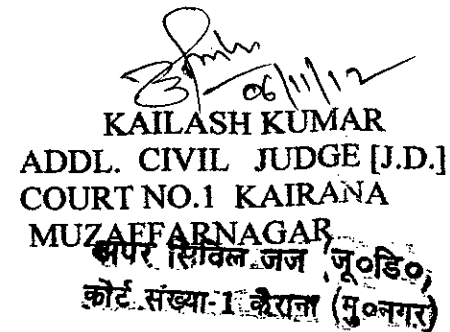 06/11/12
KAILASH KUMAR
ADDL. CIVIL JUDGE [J.D.]
COURT NO.1 KAIRANA
MUZAFFARNAGAR
अपर सिविल जज जू०डि०,
कोर्ट संख्या-1 कैराना (मु०नगर)